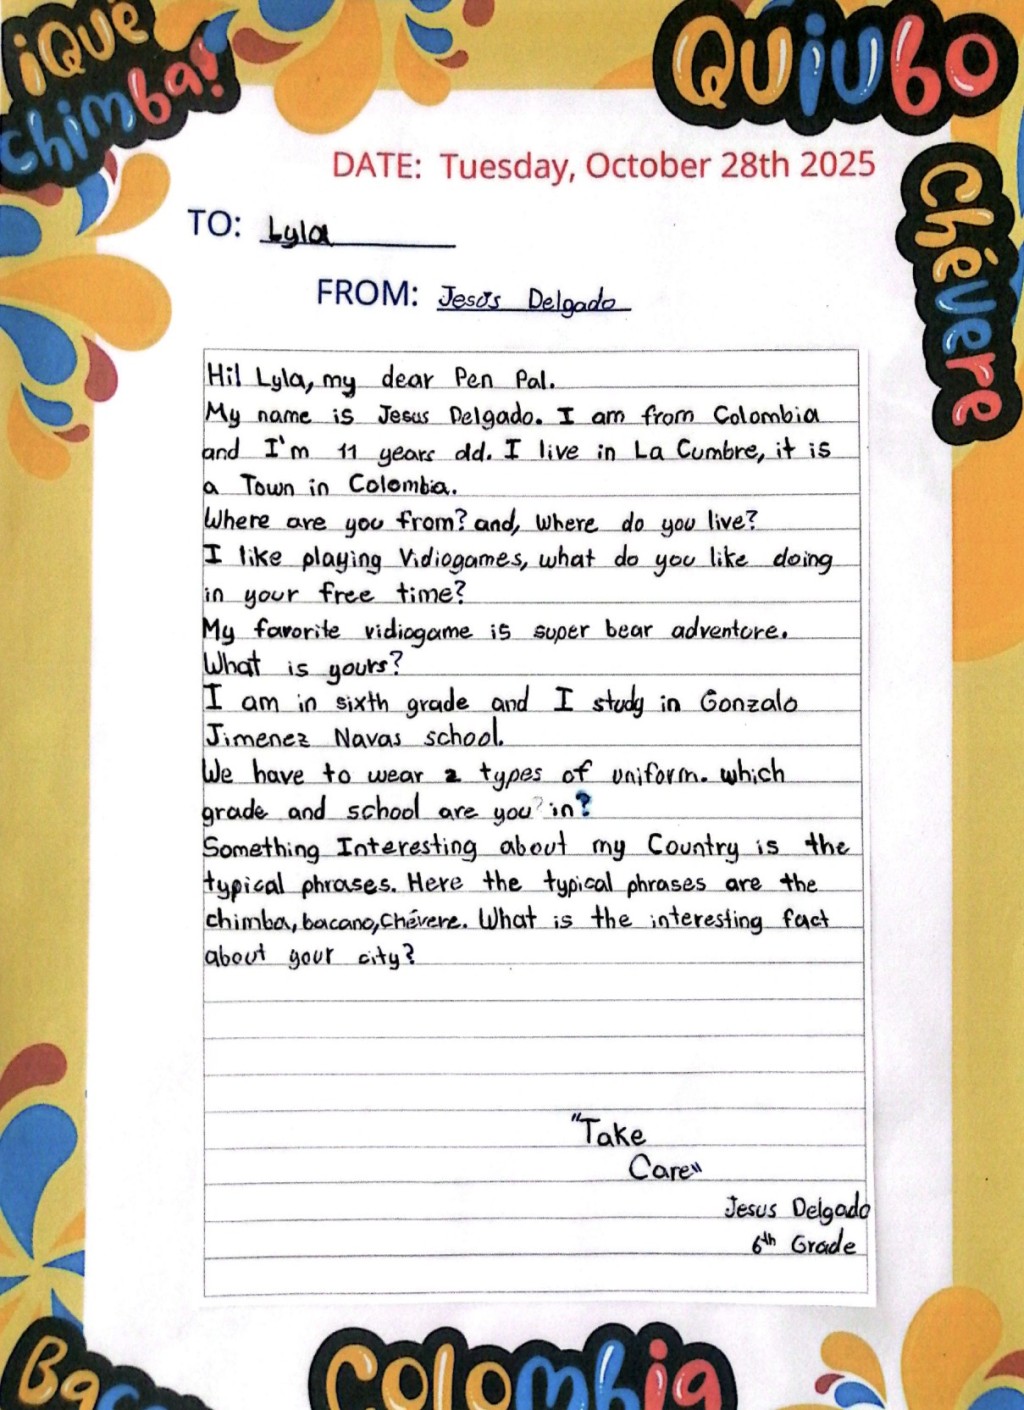 ¡Qué
chimba!
Quiubo
Chévere
DATE: Tuesday, October 28th 2025
TO: Lyla
FROM: Jesús Delgado
Hi! Lyla, my dear Pen Pal.
My name is Jesus Delgado. I am from Colombia
and I'm 11 years old. I live in La Cumbre, it is
a Town in Colombia.
Where are you from? and, where do you live?
I like playing Vidiogames, what do you like doing
in your free time?
My favorite vidiogame is super bear adventure.
What is yours?
I am in sixth grade and I study in Gonzalo
Jimenez Navas school.
We have to wear 2 types of uniform. which
grade and school are you? in?
Something Interesting about my Country is the
typical phrases. Here the typical phrases are the
chimba, bacano, Chévere. What is the interesting fact
about your city?
"Take
Care"
Jesus Delgado
6th Grade
Colombia